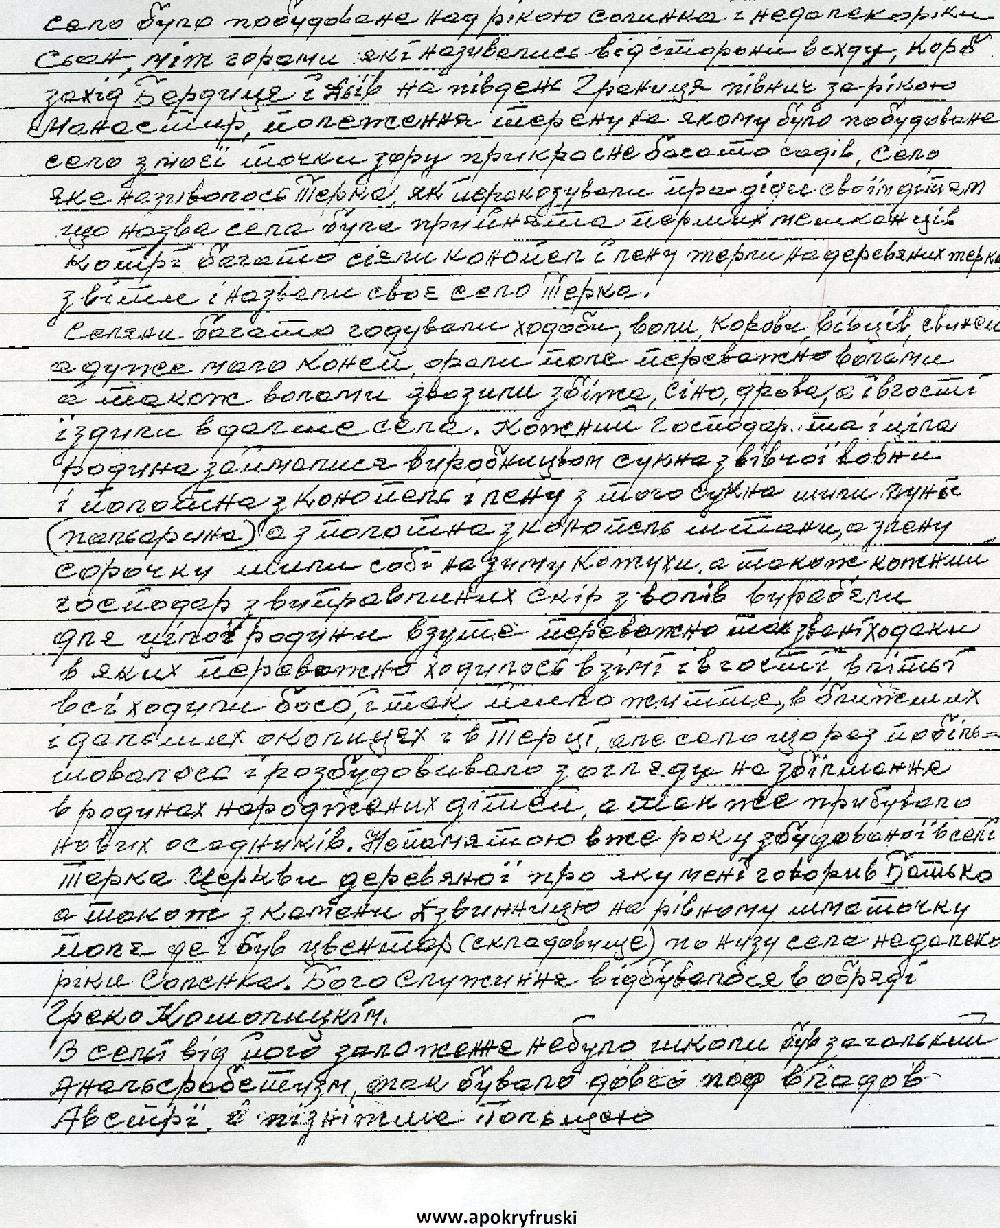 село було побудоване над рікою солинка і недалеко ріки
Сьан, між горами які називались від сторони всходу, Корб
захід Бердице і Лвів на південь Границя північ за рікою
Манастир, положення терену на якому було побудоване
село з моєї точки зору прикрасне багато садів, Село
яке називолось Терка, як пероказували пра діди своїм дітям
що назва села була прийнята перших мешканців
Котрі багато сіяли конопел і лену терли на деревяних терка
звітци і назвали своє село Терка.
Селяни багато годували худоби, воли, корови, вівців, свиней
а дуже мало Коней, орали поле переважно волами
а також волами звозили збіжа, сіно, дрова, а і вгості
іздили в дальше села. Кожний Господар та і ціла
родина займалися виробницвом сукна з вівчої вовни
і полотна з Конопель і лену з того сукна шили чуні
(палярина) а з полотна з конопель штани, а злену
сорочку шили собі на зиму Кожухи, а також кожний
господар з виправлиних скір з волів вирабяли
для цілої родини взуте переважно так звані ходаки
в яких переважно ходилось взімі і в гості, влітьї
всі ходили босо, і так плило життя, в ближших
і дальших околицех і в Терці, але село щораз побіль-
шовалося і розбудовивало з огляду на збільшання
в родинах народжених дітей, а так же прибувало
нових осадників. Непамятою вже року збудованої в селі
Терка Церкви деревяної про яку мені говорив Батько
а також з камени дзвинницю на рівному шматочку
поля де і був цвентар (складовище) по низу села недалеко
ріки Соленка. Бого Служиння відбувалося в обряді
Греко Католицкім.
В селі від його заложеня небуло школи був загальний
Анальфабетизм, так бувало довго под владов
Австрії, а пізнітше Польщею
www.apokryfruski